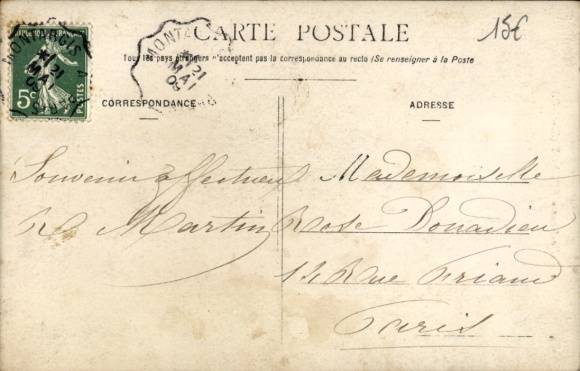 CARTE POSTALE
15€
Tous les pays étrangers n'acceptent pas la correspondance au recto (Se renseigner à la Poste
CORRESPONDANCE
ADRESSE
RÉPUBLIQUE FRANÇAISE
5c
POSTES
MONTARGIS A
21
MAI
09
Souvenir affectueux
R. Martin
Mademoiselle
Rose Donadieu
14 Rue Friand
Paris